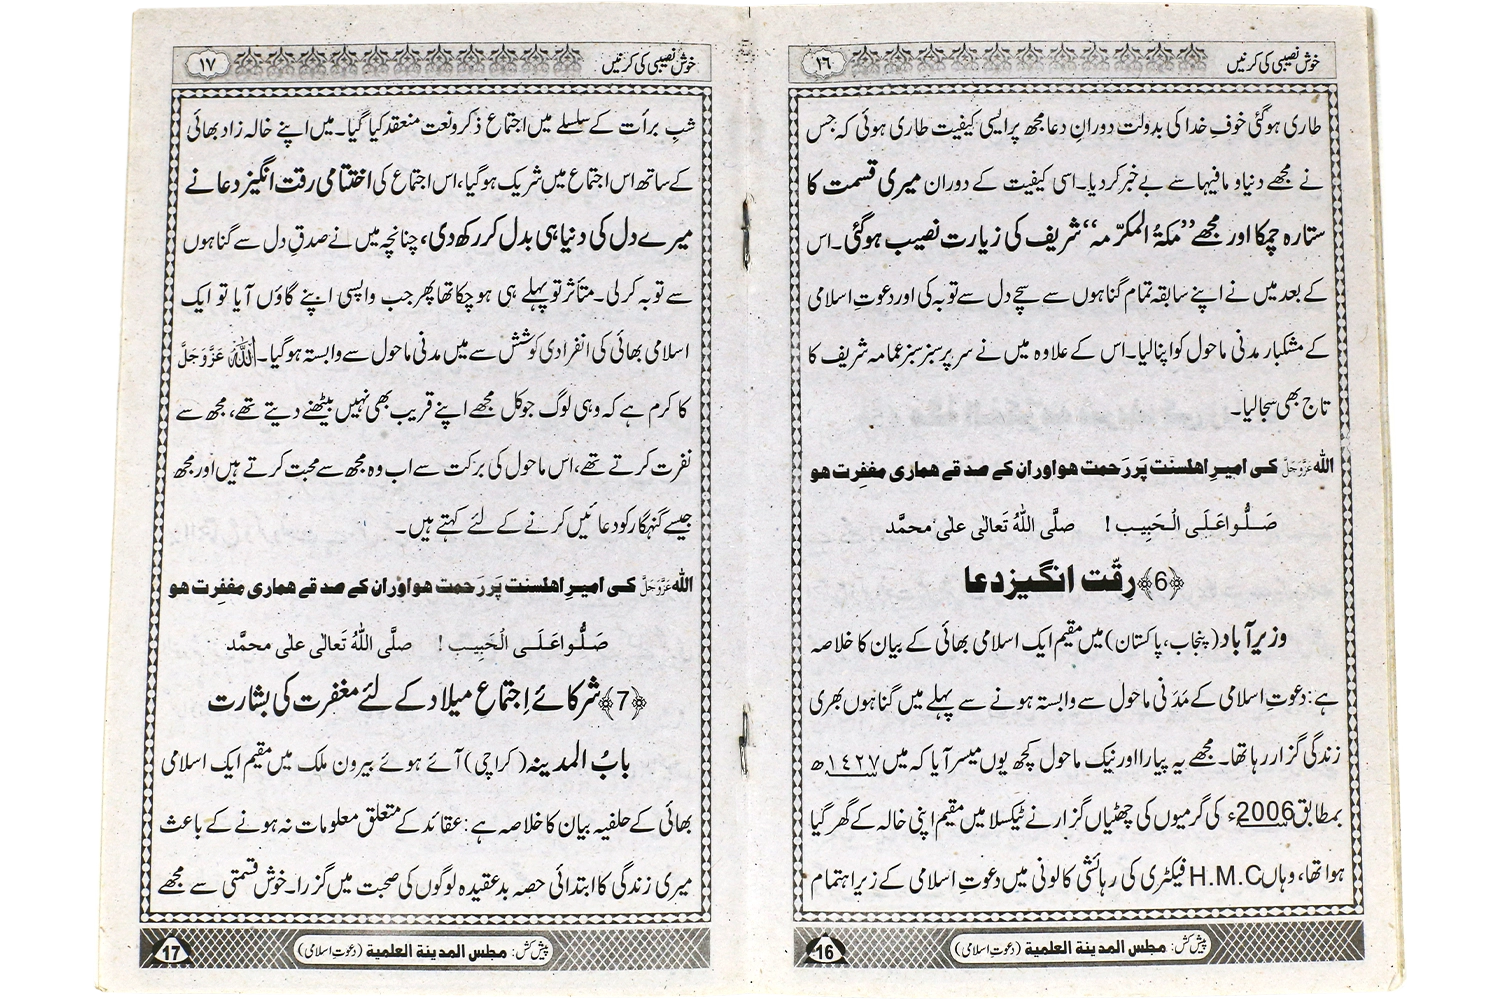 خوش نصیبی کی کرنیں ١٦
طاری ہوگئی خوفِ خدا کی بدولت دورانِ دعا مجھ پر ایسی کیفیت طاری ہوئی کہ جس
نے مجھے دنیا و مافیہا سے بے خبر کر دیا۔ اسی کیفیت کے دوران میری قسمت کا
ستارہ چمکا اور مجھے ’’مکۃُ المکرّمہ‘‘ شریف کی زیارت نصیب ہوگئی۔ اس
کے بعد میں نے اپنے سابقہ تمام گناہوں سے سچے دل سے توبہ کی اور دعوتِ اسلامی
کے مشکبار مدنی ماحول کو اپنا لیا۔ اس کے علاوہ میں نے سر پر سبز سبز عمامہ شریف کا
تاج بھی سجا لیا۔
اللہ عَزَّوَجَلَّ کی امیرِ اھلسنّت پَر رَحمت ھو اور ان کے صدقے ھماری مغفِرت ھو
صَلُّوا عَلَی الْحَبِیب ! صلَّی اللّٰہُ تَعالٰی علٰی محمَّد
﴿6﴾ رِقّت انگیز دعا
وزیر آباد (پنجاب، پاکستان) میں مقیم ایک اسلامی بھائی کے بیان کا خلاصہ
ہے: دعوتِ اسلامی کے مَدَنی ماحول سے وابستہ ہونے سے پہلے میں گناہوں بھری
زندگی گزار رہا تھا۔ مجھے یہ پیارا اور نیک ماحول کچھ یوں میسر آیا کہ میں ١٤٢٧ھ
بمطابق 2006ء کی گرمیوں کی چھٹیاں گزارنے ٹیکسلا میں مقیم اپنی خالہ کے گھر گیا
ہوا تھا، وہاں H.M.C فیکٹری کی رہائشی کالونی میں دعوتِ اسلامی کے زیرِ اہتمام
پیش کش: مجلس المدینۃ العلمیۃ (دعوتِ اسلامی) 16
خوش نصیبی کی کرنیں ١٧
شبِ برأت کے سلسلے میں اجتماع ذکر و نعت منعقد کیا گیا۔ میں اپنے خالہ زاد بھائی
کے ساتھ اس اجتماع میں شریک ہوگیا، اس اجتماع کی اختتامی رقت انگیز دعا نے
میرے دل کی دنیا ہی بدل کر رکھ دی، چنانچہ میں نے صدقِ دل سے گناہوں
سے توبہ کر لی۔ متأثر تو پہلے ہی ہو چکا تھا پھر جب واپسی اپنے گاؤں آیا تو ایک
اسلامی بھائی کی انفرادی کوشش سے میں مدنی ماحول سے وابستہ ہوگیا۔ اللّٰہ عَزَّوَجَلَّ
کا کرم ہے کہ وہی لوگ جو کل مجھے اپنے قریب بھی نہیں بیٹھنے دیتے تھے، مجھ سے
نفرت کرتے تھے، اس ماحول کی برکت سے اب وہ مجھ سے محبت کرتے ہیں اور مجھ
جیسے گنہگار کو دعائیں کرنے کے لئے کہتے ہیں۔
اللہ عَزَّوَجَلَّ کی امیرِ اھلسنّت پَر رَحمت ھو اور ان کے صدقے ھماری مغفِرت ھو
صَلُّوا عَلَی الْحَبِیب ! صلَّی اللّٰہُ تَعالٰی علٰی محمَّد
﴿7﴾ شرکائے اِجتماعِ میلاد کے لئے مغفرت کی بشارت
بابُ المدینہ (کراچی) آئے ہوئے بیرون ملک میں مقیم ایک اسلامی
بھائی کے حلفیہ بیان کا خلاصہ ہے: عقائد کے متعلق معلومات نہ ہونے کے باعث
میری زندگی کا ابتدائی حصہ بدعقیدہ لوگوں کی صحبت میں گزرا۔ خوش قسمتی سے مجھے
پیش کش: مجلس المدینۃ العلمیۃ (دعوتِ اسلامی) 17